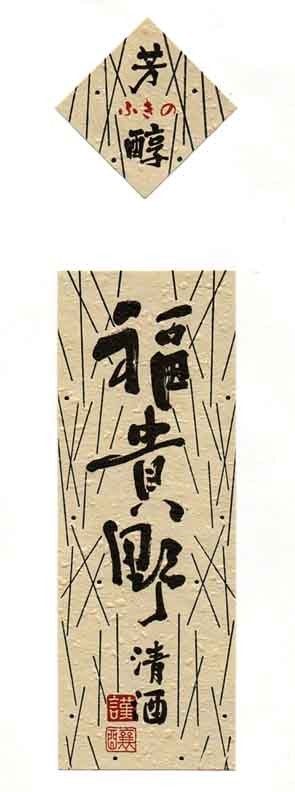 芳醇
ふきの
福貴野
清酒
謹